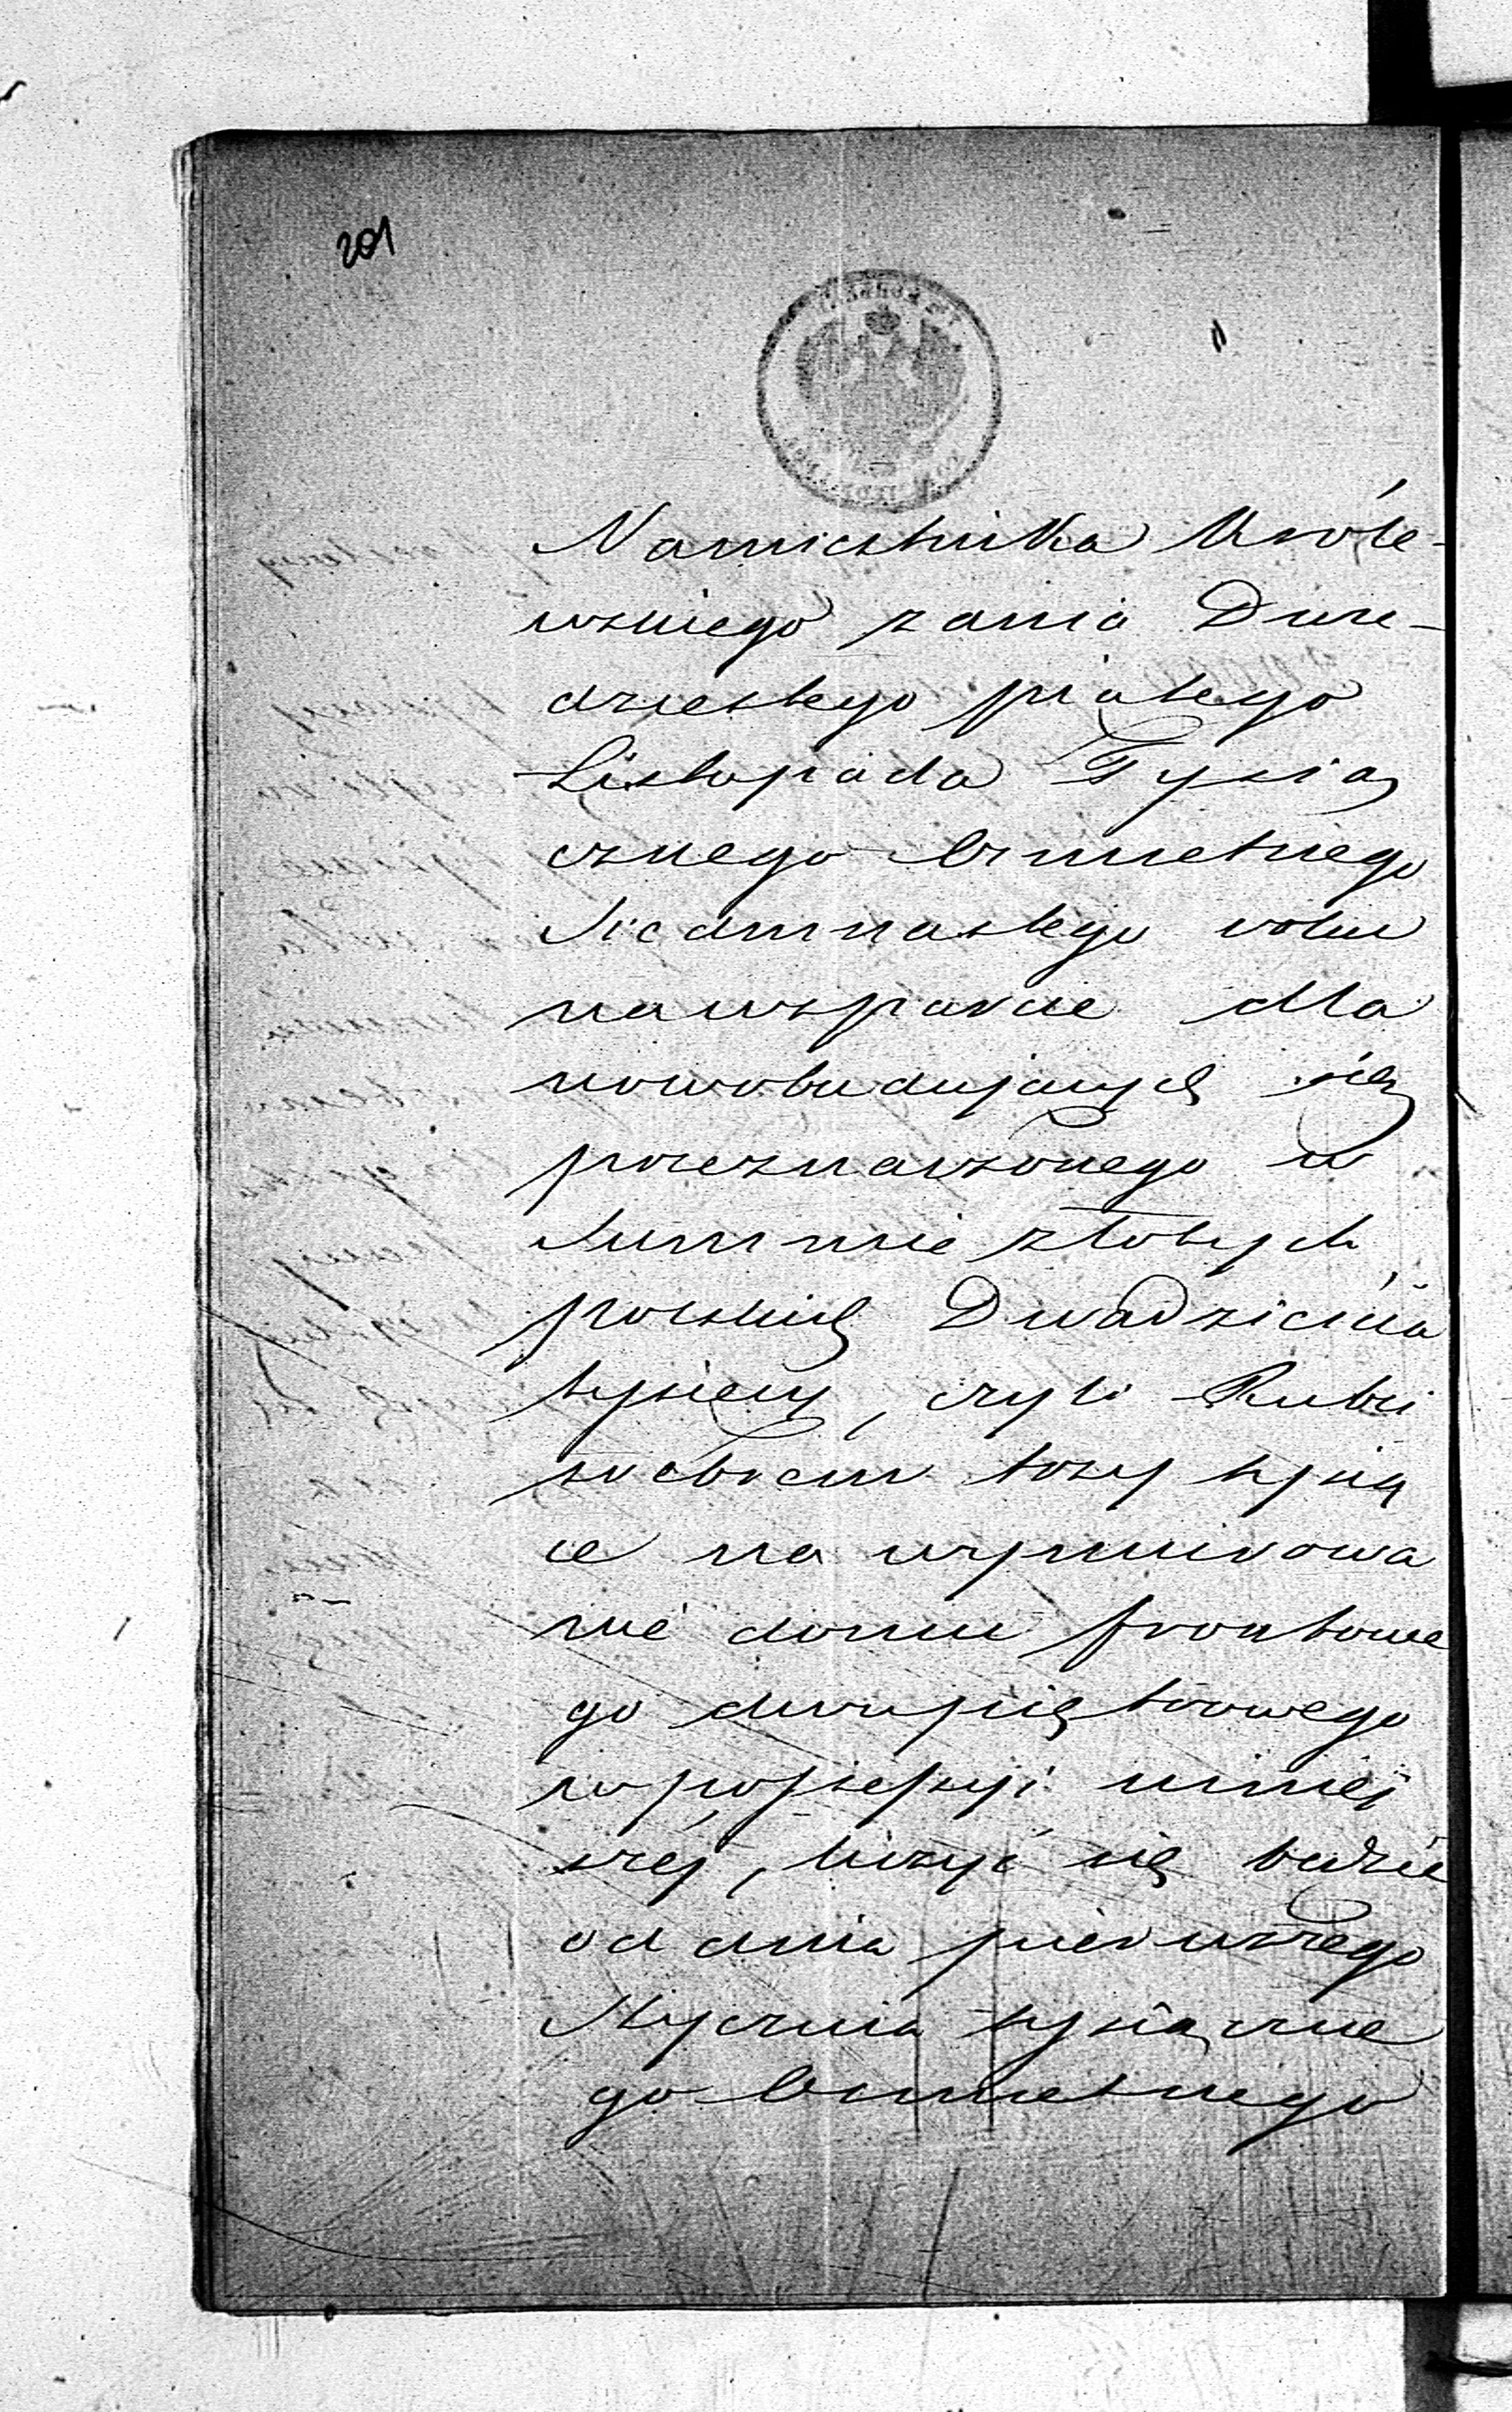 201
Namiestnika Króle-
wskiego z dnia Dwu-
dziestego piątego
Listopada Tysią
cznego Ośmsetnego
Siedmnastego roku
na wsparcie dla
nowobudujących się
przeznaczonego w
Summie złotych
polskich Dwadzieścia
tysięcy, czyli Rubli
srebrem trzy tysią
ce na wymurowa
nie domu frontowe
go dwupiętrowego
w possessyi niniej
széj, liczyć się będzie
od dnia pierwszego
Stycznia tysiączne
go Ośmsetnego